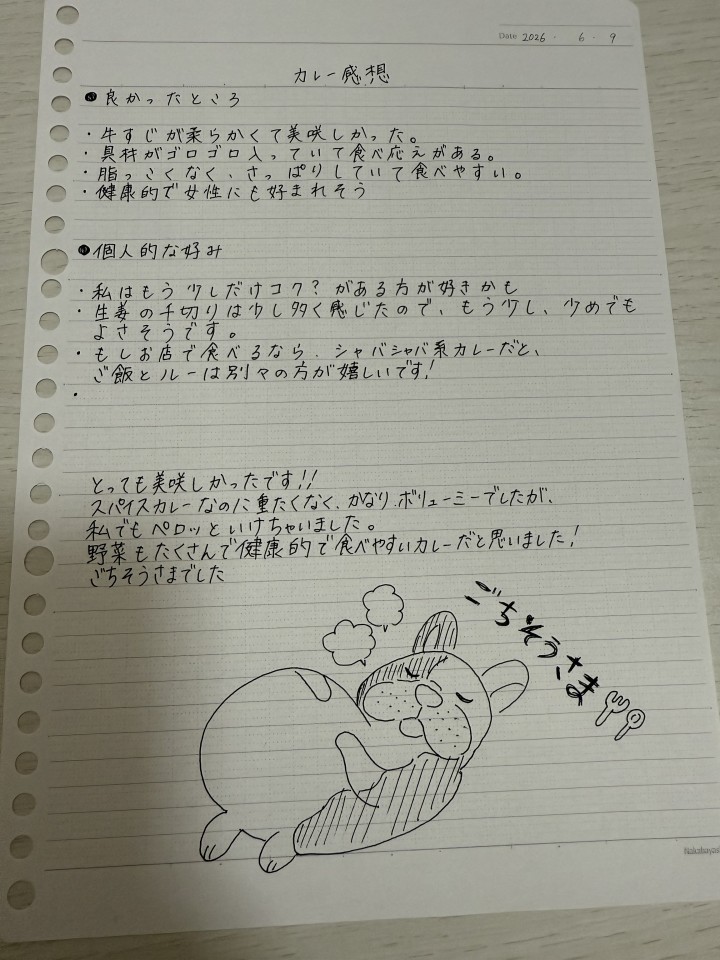 Date 2026 ・ 6 ・ 9
カレー感想
●良かったところ
・牛すじが柔らかくて美味しかった。
・具材がゴロゴロ入っていて食べ応えがある。
・脂っこくなく、さっぱりしていて食べやすい。
・健康的で女性にも好まれそう
●個人的な好み
・私はもう少しだけコク？がある方が好きかも
・生姜の千切りは少し多く感じたので、もう少し、少めでも
よさそうです。
・もしお店で食べるなら、シャバシャバ系カレーだと、
ご飯とルーは別々の方が嬉しいです!
・
とっても美味しかったです!!
スパイスカレーなのに重たくなく、かなりボリューミーでしたが、
私でもペロッといけちゃいました。
野菜もたくさんで健康的で食べやすいカレーだと思いました!
ごちそうさまでした
ごちそうさま
Nakabayas